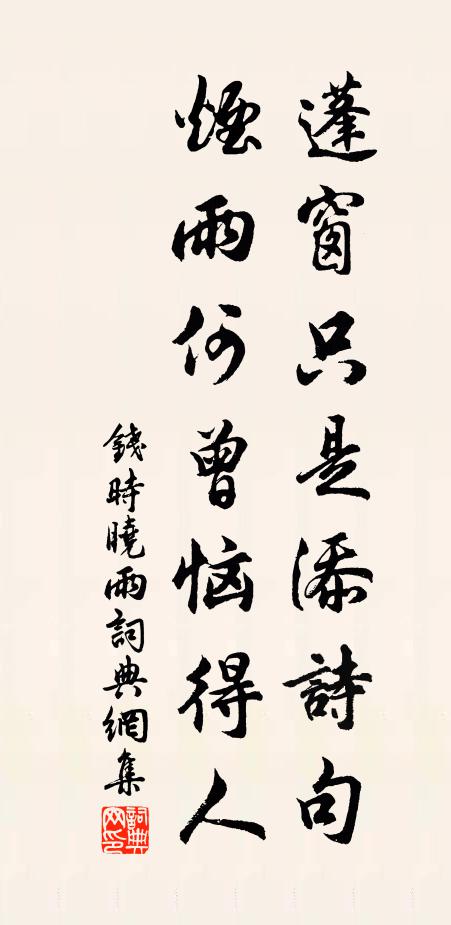 蓬窗只是添詩句
煙雨何曾惱得人
錢時曉雨詞典網集
詞典網印